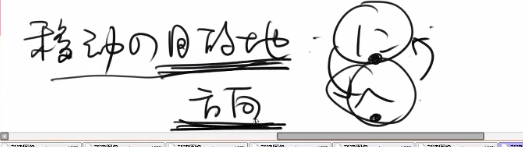 移动の目的地 に
方向 へ